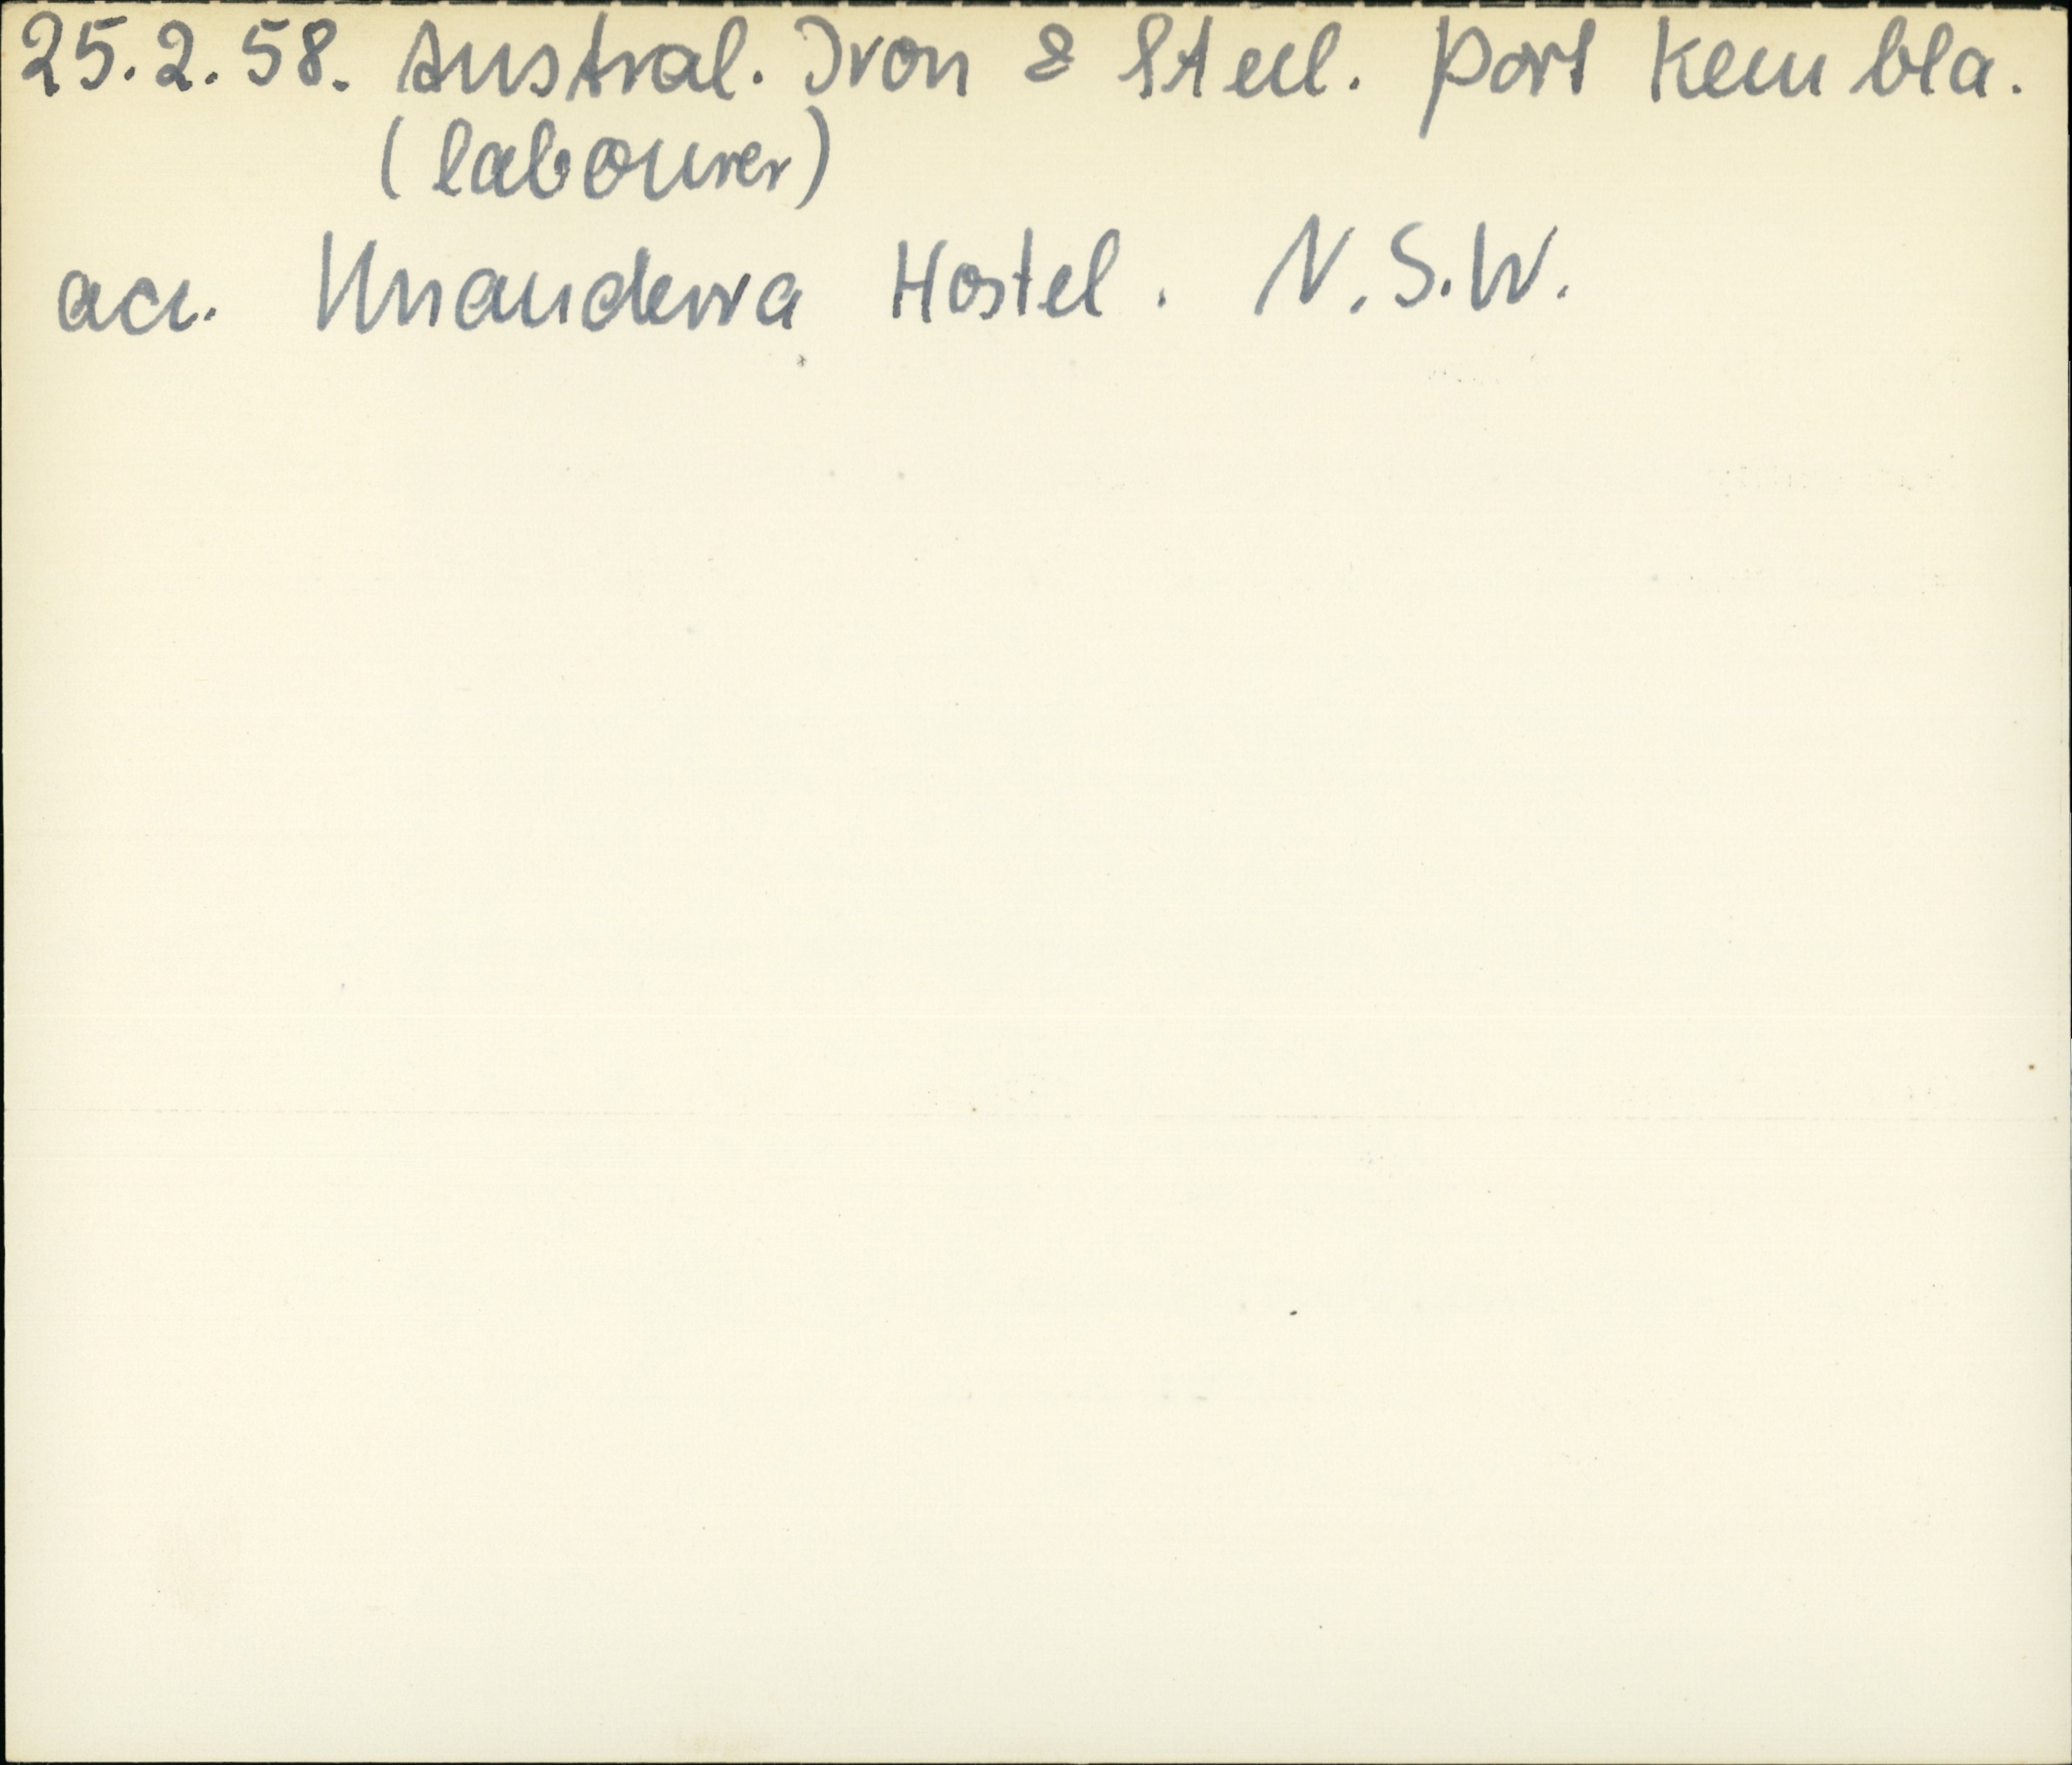 25.2.58. Austral. Iron & Steel. Port Kembla.
(labourer)
acc. Unanderra Hostel. N.S.W.